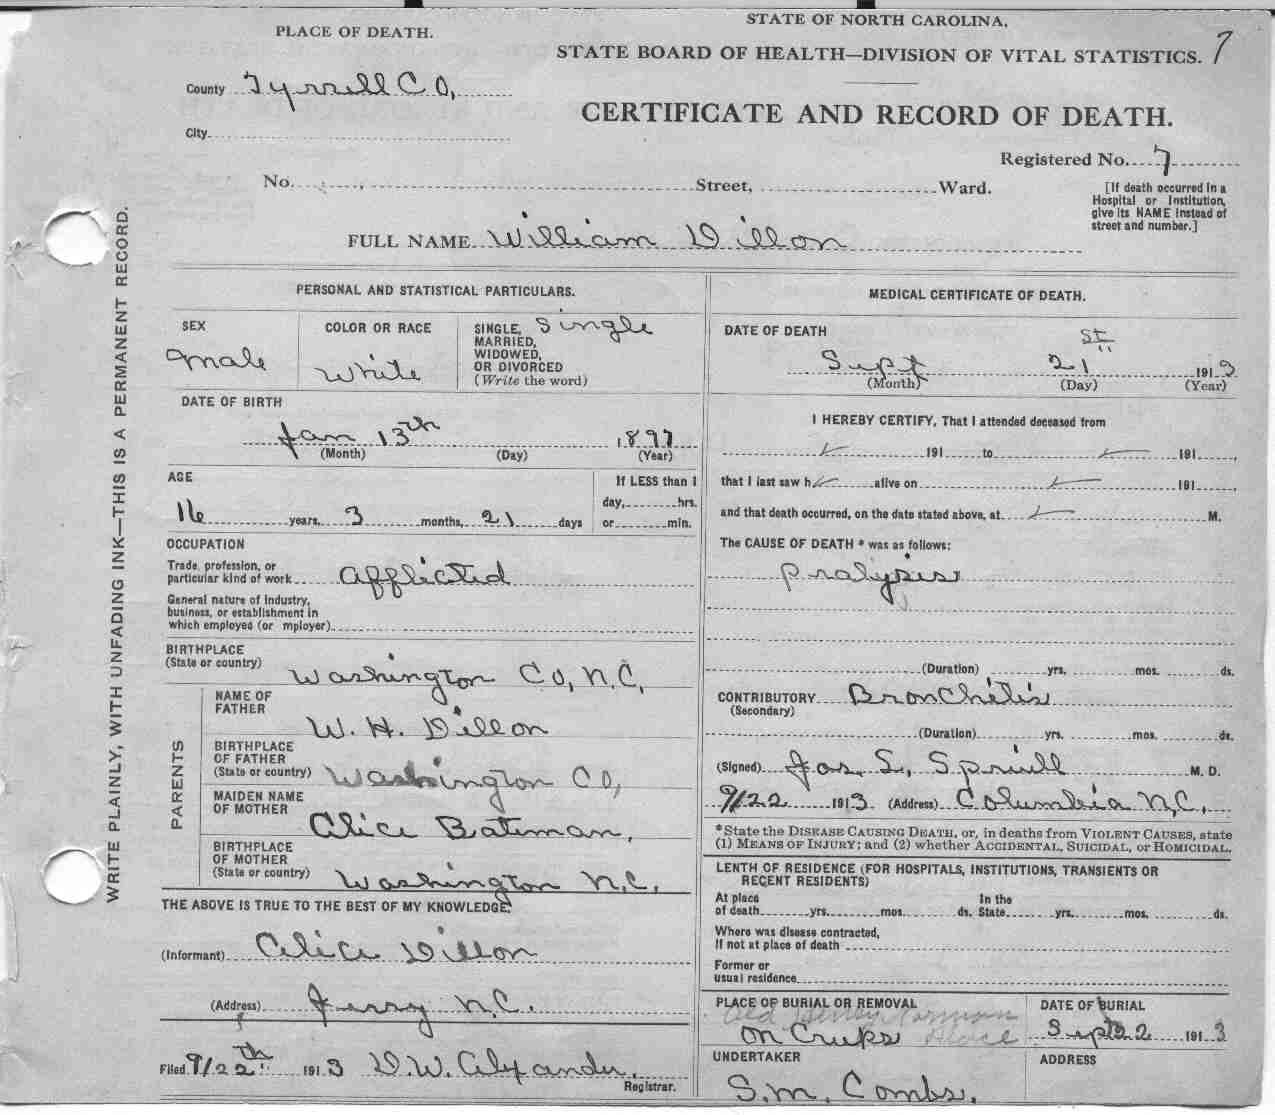 PLACE OF DEATH.
STATE OF NORTH CAROLINA.
STATE BOARD OF HEALTH—DIVISION OF VITAL STATISTICS. 7
County Tyrrell CO,
CERTIFICATE AND RECORD OF DEATH.
City
Registered No. 7
No. Street, Ward.
[If death occurred in a Hospital or Institution, give its NAME instead of street and number.]
FULL NAME William Dillon
WRITE PLAINLY, WITH UNFADING INK—THIS IS A PERMANENT RECORD.
PERSONAL AND STATISTICAL PARTICULARS.
SEX
male
COLOR OR RACE
White
SINGLE, Single
MARRIED,
WIDOWED,
OR DIVORCED
(Write the word)
DATE OF BIRTH
Jan 13th 1897
(Month) (Day) (Year)
AGE
16 years, 3 months, 21 days
If LESS than 1
day, hrs.
or min.
OCCUPATION
Trade, profession, or
particular kind of work afflicted
General nature of industry,
business, or establishment in
which employed (or mployer)
BIRTHPLACE
(State or country) Washington Co, N.C,
PARENTS
NAME OF
FATHER W. H. Dillon
BIRTHPLACE
OF FATHER
(State or country) Washington Co,
MAIDEN NAME
OF MOTHER Alice Bateman,
BIRTHPLACE
OF MOTHER
(State or country) Washington N.C.
THE ABOVE IS TRUE TO THE BEST OF MY KNOWLEDGE.
(Informant) Alice Dillon
(Address) Jerry N.C.
Filed 9/22th 1913 D.W. Alexander.
Registrar.
MEDICAL CERTIFICATE OF DEATH.
DATE OF DEATH
Sept 21st 1913
(Month) (Day) (Year)
I HEREBY CERTIFY, That I attended deceased from
191 to 191 ,
that I last saw h alive on 191 ,
and that death occurred, on the date stated above, at M.
The CAUSE OF DEATH * was as follows:
pralysis
(Duration) yrs. mos. ds.
CONTRIBUTORY Bronchitis
(Secondary)
(Duration) yrs. mos. ds.
(Signed) Jas. S. Spruill M. D.
9/22 1913 (Address) Columbia N.C.
*State the DISEASE CAUSING DEATH, or, in deaths from VIOLENT CAUSES, state
(1) MEANS OF INJURY; and (2) whether ACCIDENTAL, SUICIDAL, or HOMICIDAL.
LENTH OF RESIDENCE (FOR HOSPITALS, INSTITUTIONS, TRANSIENTS OR
RECENT RESIDENTS)
At place In the
of death yrs. mos. ds. State yrs. mos. ds.
Where was disease contracted,
If not at place of death
Former or
usual residence
PLACE OF BURIAL OR REMOVAL
Old Henry Norman
on Crups Place
DATE OF BURIAL
Sept 22 1913
UNDERTAKER
S.M. Combs.
ADDRESS